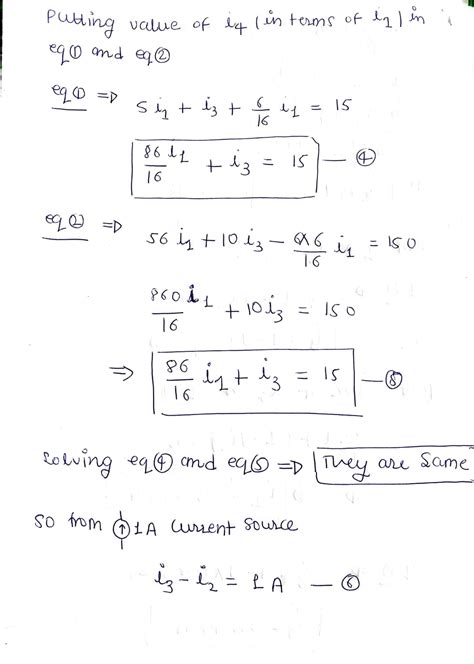 Putting value of i4 (in terms of i1) in
eq① and eq②
eq① ⇒ 5i1 + i3 + 6/16 i1 = 15
86/16 i1 + i3 = 15 — ④
eq② ⇒ 56i1 + 10i3 - 6x6/16 i1 = 150
860i1/16 + 10i3 = 150
⇒ 86/16 i1 + i3 = 15 — ⑤
Solving eq④ and eq⑤ ⇒ They are same
so from 1A current source
i3 - i2 = 1A — ⑥